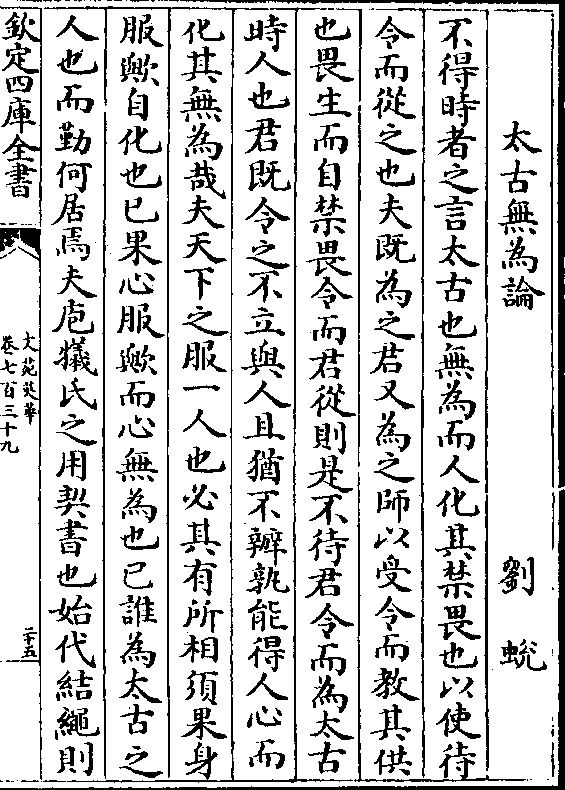 太古無為論　劉蛻
不得時者之言太古也無為而人化其禁畏也以使待
令而從之也夫既為之君又為之師以受令而教其供
也畏生而自禁畏令而君從則是不待君令而為太古
時人也君既令之不立與人且猶不辨孰能得人心而
化其無為哉夫天下之服一人也必其有所相須果身
服歟自化也已果心服歟而心無為也已誰為太古之
人也而勤何居焉夫庖犧氏之用契書也始代結繩則
欽定四庫全書
文苑英華
卷七百三十九
二十五